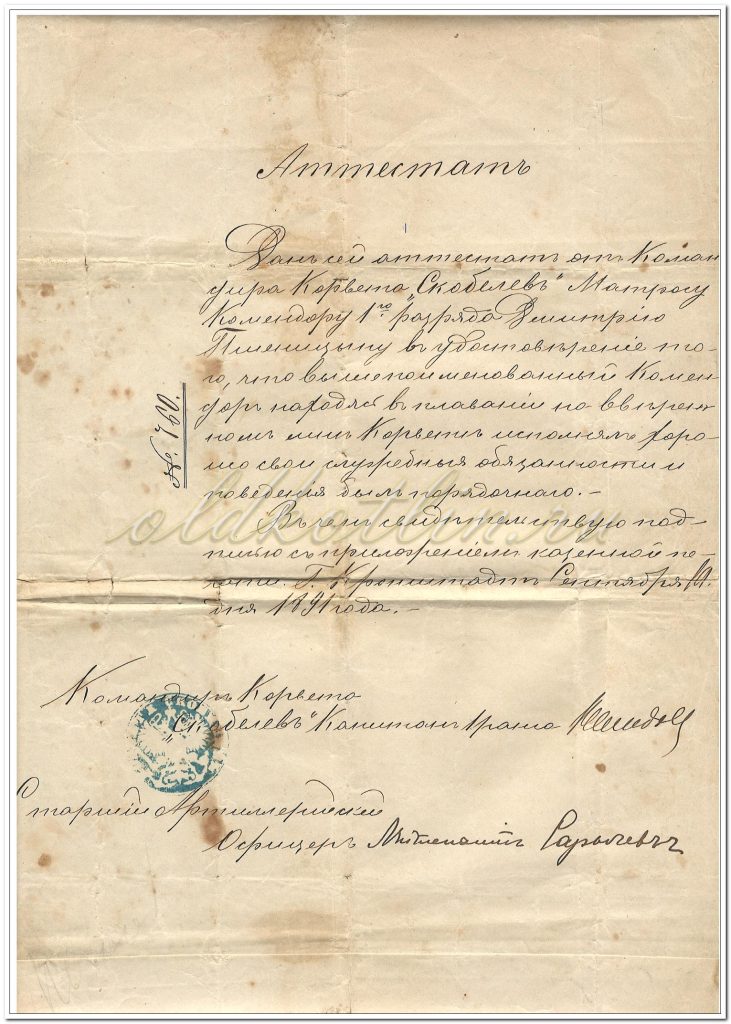 Аттестатъ
Данъ сей аттестатъ отъ Коман
дира Корвета „Скобелевъ" Матросу
Комендору 1го разряда Дмитрію
Пшеницыну въ удостовѣреніе то-
го, что вышепоименованный Комен-
доръ находясь въ плаваніи на ввѣрен-
номъ мнѣ Корветѣ исполнялъ хоро-
шо свои служебныя обязанности и
поведенія былъ порядочнаго. -
№ 760.
Въ чемъ свидѣтельствую под-
писью съ приложеніемъ казенной пе-
чати. Г. Кронштадтъ Сентября
дня 1891 года. -
Командиръ Корвета
„Скобелевъ" Капитанъ 1 ранга
Старшій Артиллерійскій
Офицеръ Лейтенантъ
oldkotlin.ru